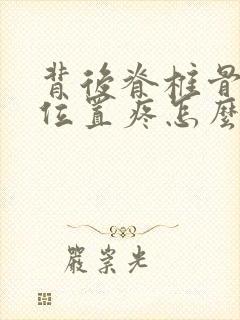 背後脊柱骨
位置疼怎麼
嚴崇光